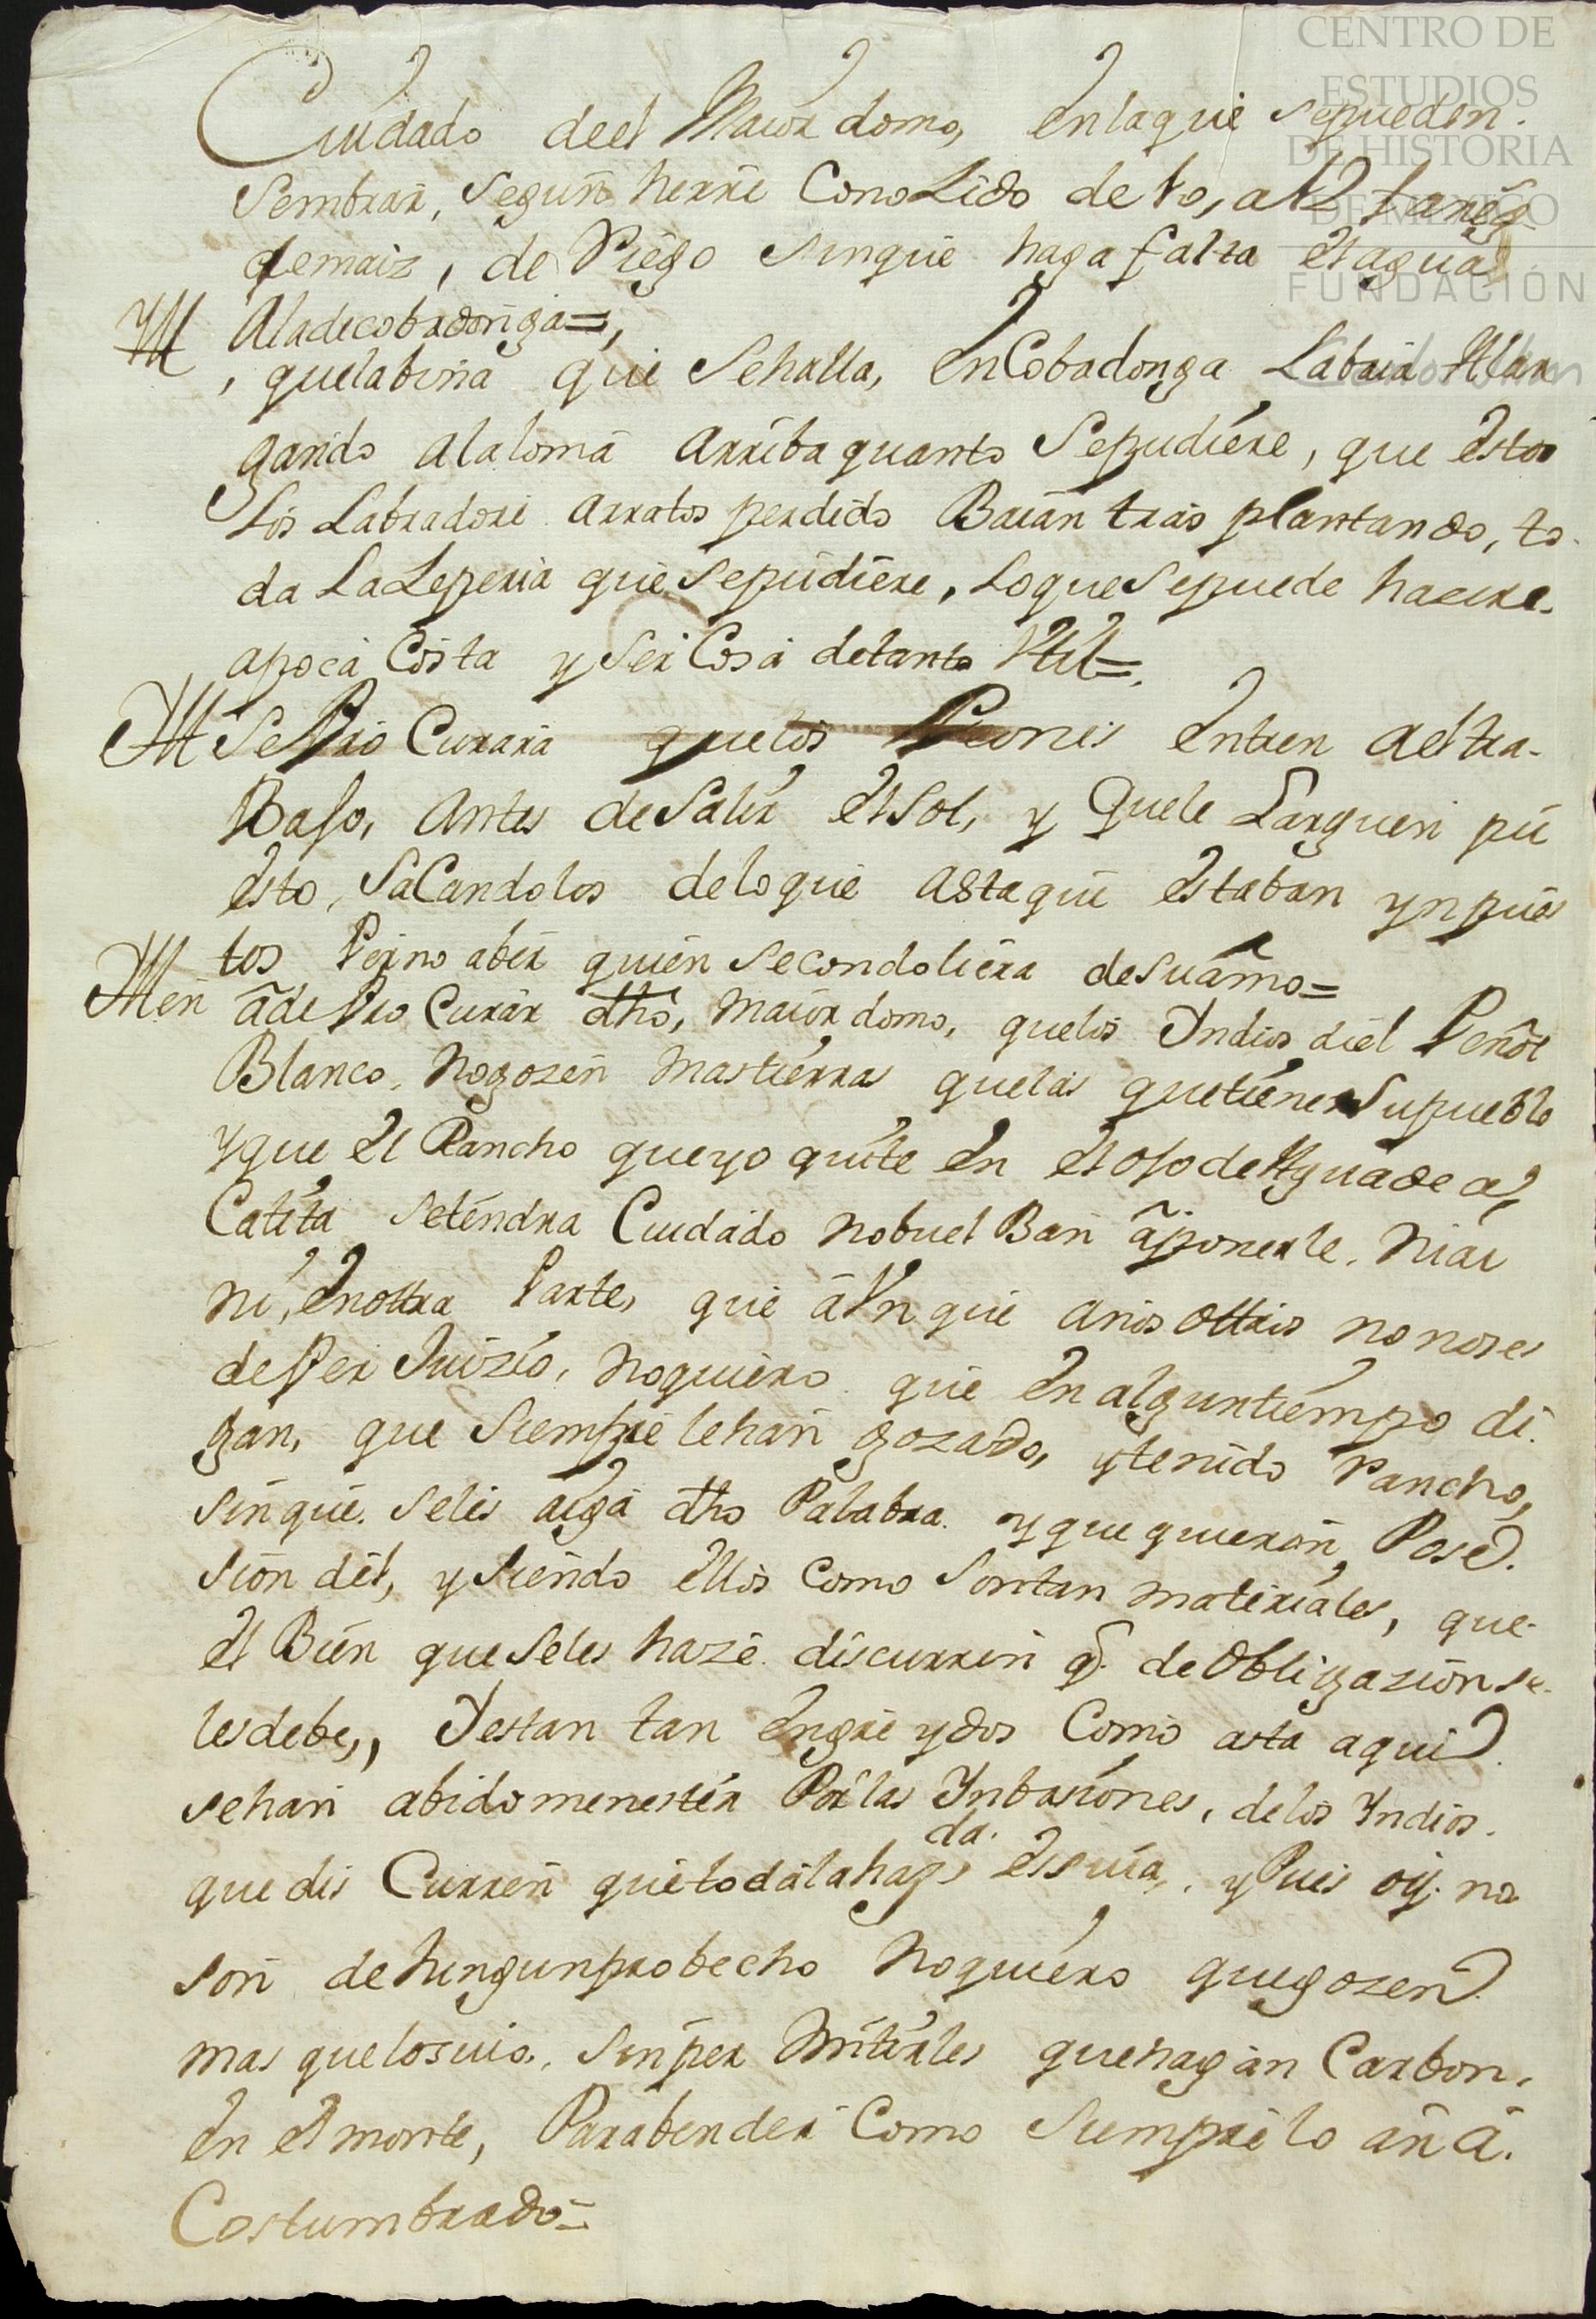 CENTRO DE
ESTUDIOS
DE HISTORIA
DE MEXICO
FUNDACIÓN
Cuidado deel Maior domo, en la que se pueden
sembrar, segun herre Conocido de to, a 12 fanegs
de maiz, de Riego sinque haga falta el agua
Yt Aladecobadonga=,
, quelabiña que Sehalla, en Cobadonga Labaia Alar
gando alaloma arriba quanto Sepudiere, que esto
los Labradore arratos perdido Baian tras plantando, to
da LaZeperia que sepudiere, loque Sepuede hacere
apoca Costa y ser Cosa detanto Util=,
Yt Se Pro Curara quelos Peones entren aeltra-
Bajo, antes deSalir el Sol, y Quele Larguen pu
esto, SaCandolos deloque astaqui estaban ynpues
tos Porno aber quien secondoliera desuamo=
Yten ade Pro Curar dho, maior domo, quelos Yndios diel Peñol
Blanco, nogozen mastierras quelas quetienen Supueblo
yque el Rancho queyo quite en el ojo de Aguade a,
Catita setendra Cuidado nobuel Ban aponerle, niai
ni, en ottra Parte, que aVnque anos ottros no noses
dePer Juizio, noquiero que en alguntiempo di
gan, que siempre lehan gozado, ytenido Rancho,
sinque seles aiga dho Palabra yque quieran Pose
sion del, ysiendo ellos como sontan materiales, que
el Bien que Seles haze discurren q. de Obligazion se
lesdebe,, Yestan tan engreydos Como asta aqui
sehan abidomenester Por las Ynbasiones, delos Yndios
que dis Curren quetodalahazda. essuia, y Pues oy. no
son deningunprobecho noquiero quegozen
mas quelosuio, sinper mitirles quehagan Carbon,
en el monte, Parabender Como siempre lo an a
Costumbrado=